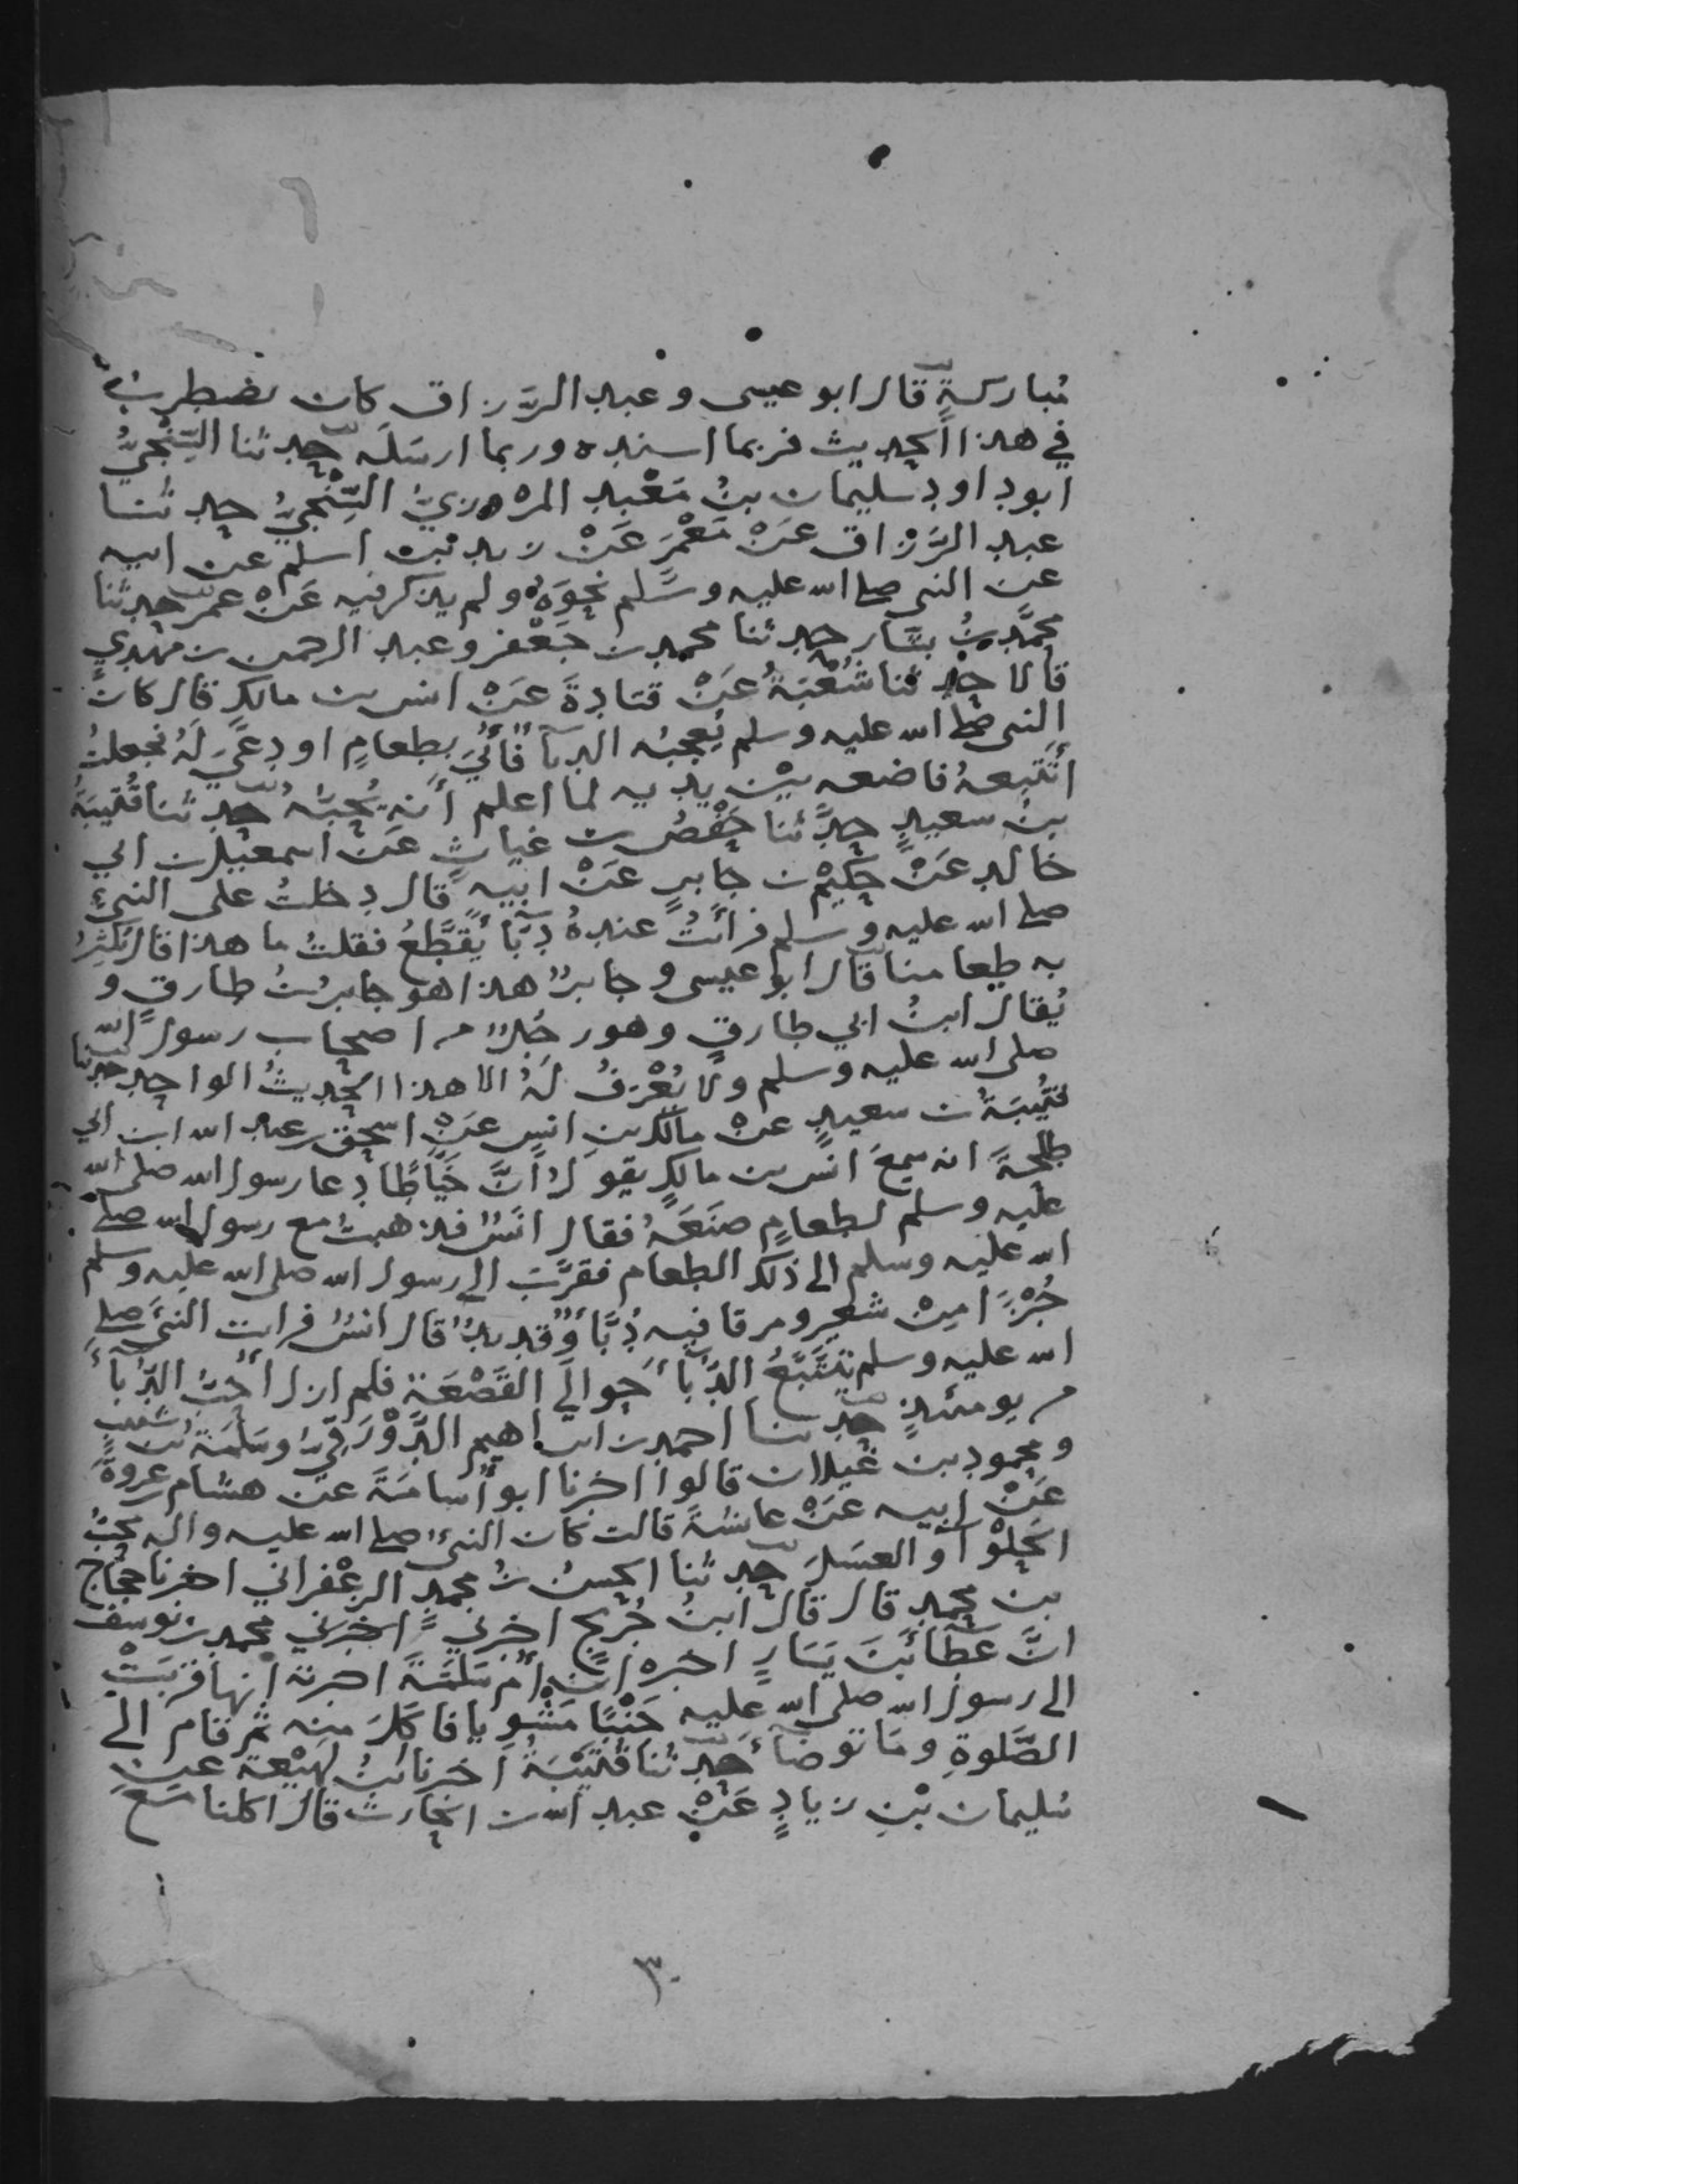 مُباركةٍ قال ابو عيسى و عبد الرَّزاق كان يضطربُ
في هذا الحديث فربما اسنده وربما ارسَلَه حدثنا السِّنْجيُّ
ابوداود سليمان بنُ مَعْبد المروزيُّ السِّنْجيُّ حدثنا
عبد الرَّزاق عَنْ مَعْمَرٍ عَنْ زيد بن اسلم عن ابيه
عن النبي صلى الله عليه وسَلم نحوَهُ ولم يذكر فيه عَنْ عمر حدثنا
محمَّدبنُ بشَّار حدثنا محمد بن جَعْفر و عبد الرحمن بن مَهْدي
قالا حدثنا شُعْبَةُ عَنْ قتادةَ عَنْ انس بن مالكٍ قال كان
النبي صلى الله عليه وسلم يُعجبُه الدبآ فأُتيَ بطعامٍ اودعيَ لَهُ فجعلتُ
أتَتَبعهُ فاضعه بيْن يديه لما اعلم أنه يُحبّهُ حدثنا قُتَيبَةُ
بنُ سعيدٍ حدَّثنا حَفْصُ بن غياثٍ عَن اسمعيل بن ابي
خالد عَنْ حَكيمْ بن جابرٍ عَنْ ابيه قال دخلتُ على النبيّ
صلى الله عليه وسلم فرأيتُ عندهُ دبآً يُقطَّعُ فقلتُ ما هذا قال نكَثِرُ
به طعامنا قال ابو عيسى و جابرٌ هذا هو جابر بنُ طارقٍ و
يُقال ابنُ ابي طارقٍ وهو رجُلٌ من اصحاب رسول الله
صلى الله عليه وسلم ولا يُعْرَفُ لَهُ الا هذا الحديثُ الواحد حدثنا
قُتَيبَةُ بن سعيدٍ عنْ مالك بن انسٍ عَنْ اسحق بن عبد الله ابن ابي
طلحةَ انه سمعَ انس بن مالكٍ يقولُ انَّ خَيَّاطًا دعا رسول الله صلى الله
عليه وسلم لطعامٍ صنَعَهُ فقال انَسٌ فذهبتُ مع رسول الله صلى
الله عليه وسلم الى ذلك الطعام فقرَّبَ الى رسول الله صلى الله عليه وسلم
خُبْزًا مِنْ شعير ومرقا فيه دُبَّأٌ وقديدٌ قال انسٌ فرايت النبيَّ صلى
الله عليه وسلم يَتَتَبَّعُ الدُّبآءَ حوالَي القَصْعَة فلم ازل أحبُّ الدّبآءَ
من يومئذٍ حدثنا احمد بن ابراهيم الدَّوْرَقيُّ وسَلَمَة بن شبيب
و محمود بن غَيلان قالوا اخبرنا ابو أُسامَةَ عن هشام بن عروةَ
عَنْ ابيه عَنْ عائشةَ قالت كان النبيُّ صلى الله عليه واله يحبُّ
الحلْوآ والعسَلَ حدثنا الحسنُ بنُ محمدٍ الزعْفراني اخبرنا حجَّاج
بن محمدٍ قال قال ابنُ جُريجٍ اخبرني اخبرني محمد بن يوسف
انَّ عطآئبنَ يَسَارٍ اخبره ان أُم سَلمَةَ اخبرته أنها قربَتْ
الى رسول الله صلى الله عليه جَنْبًا مَشْويا فاكلَ منه ثم قام الى
الصَّلوةِ ومَا توضأ حدثنا قُتَيْبَةُ اخبرنا ابنُ لَهيْعَة عن
سُليمان بْنِ زيادٍ عَنْ عبد الله بن الحارث قال اكلنا مَعَ
٣٠